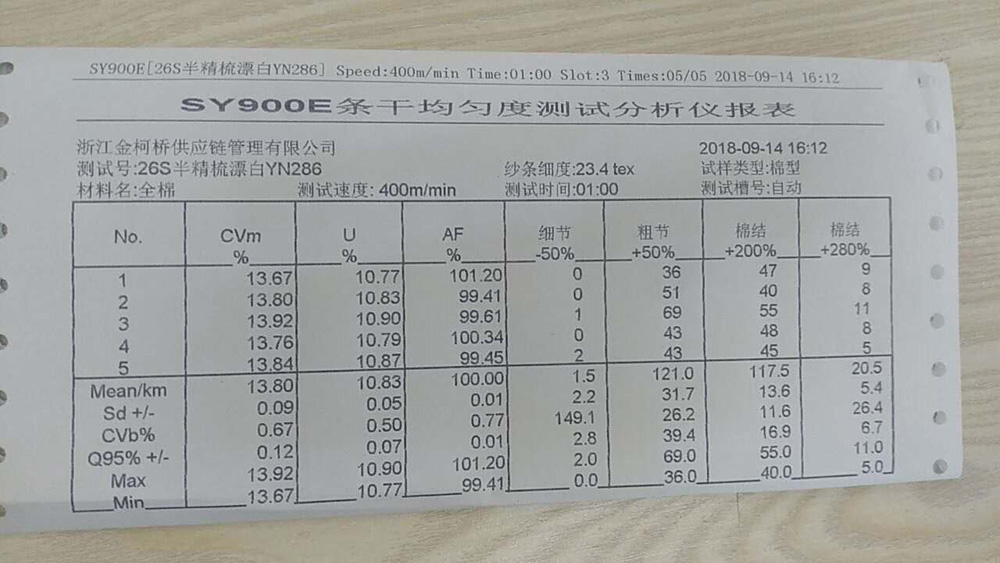 SY900E[26S半精梳漂白YN286] Speed:400m/min Time:01:00 Slot:3 Times:05/05 2018-09-14 16:12
SY900E条干均匀度测试分析仪报表
浙江金柯桥供应链管理有限公司 2018-09-14 16:12
测试号:26S半精梳漂白YN286 纱条细度:23.4 tex 试样类型:棉型
材料名:全棉 测试速度: 400m/min 测试时间:01:00 测试槽号:自动
No. CVm U AF 细节 粗节 棉结 棉结
% % % -50% +50% +200% +280%
1 13.67 10.77 101.20 0 36 47 9
2 13.80 10.83 99.41 0 51 40 8
3 13.92 10.90 99.61 1 69 55 11
4 13.76 10.79 100.34 0 43 48 8
5 13.84 10.87 99.45 2 43 45 5
Mean/km 13.80 10.83 100.00 1.5 121.0 117.5 20.5
Sd +/- 0.09 0.05 0.01 2.2 31.7 13.6 5.4
CVb% 0.67 0.50 0.77 149.1 26.2 11.6 26.4
Q95% +/- 0.12 0.07 0.01 2.8 39.4 16.9 6.7
Max 13.92 10.90 101.20 2.0 69.0 55.0 11.0
Min 13.67 10.77 99.41 0.0 36.0 40.0 5.0